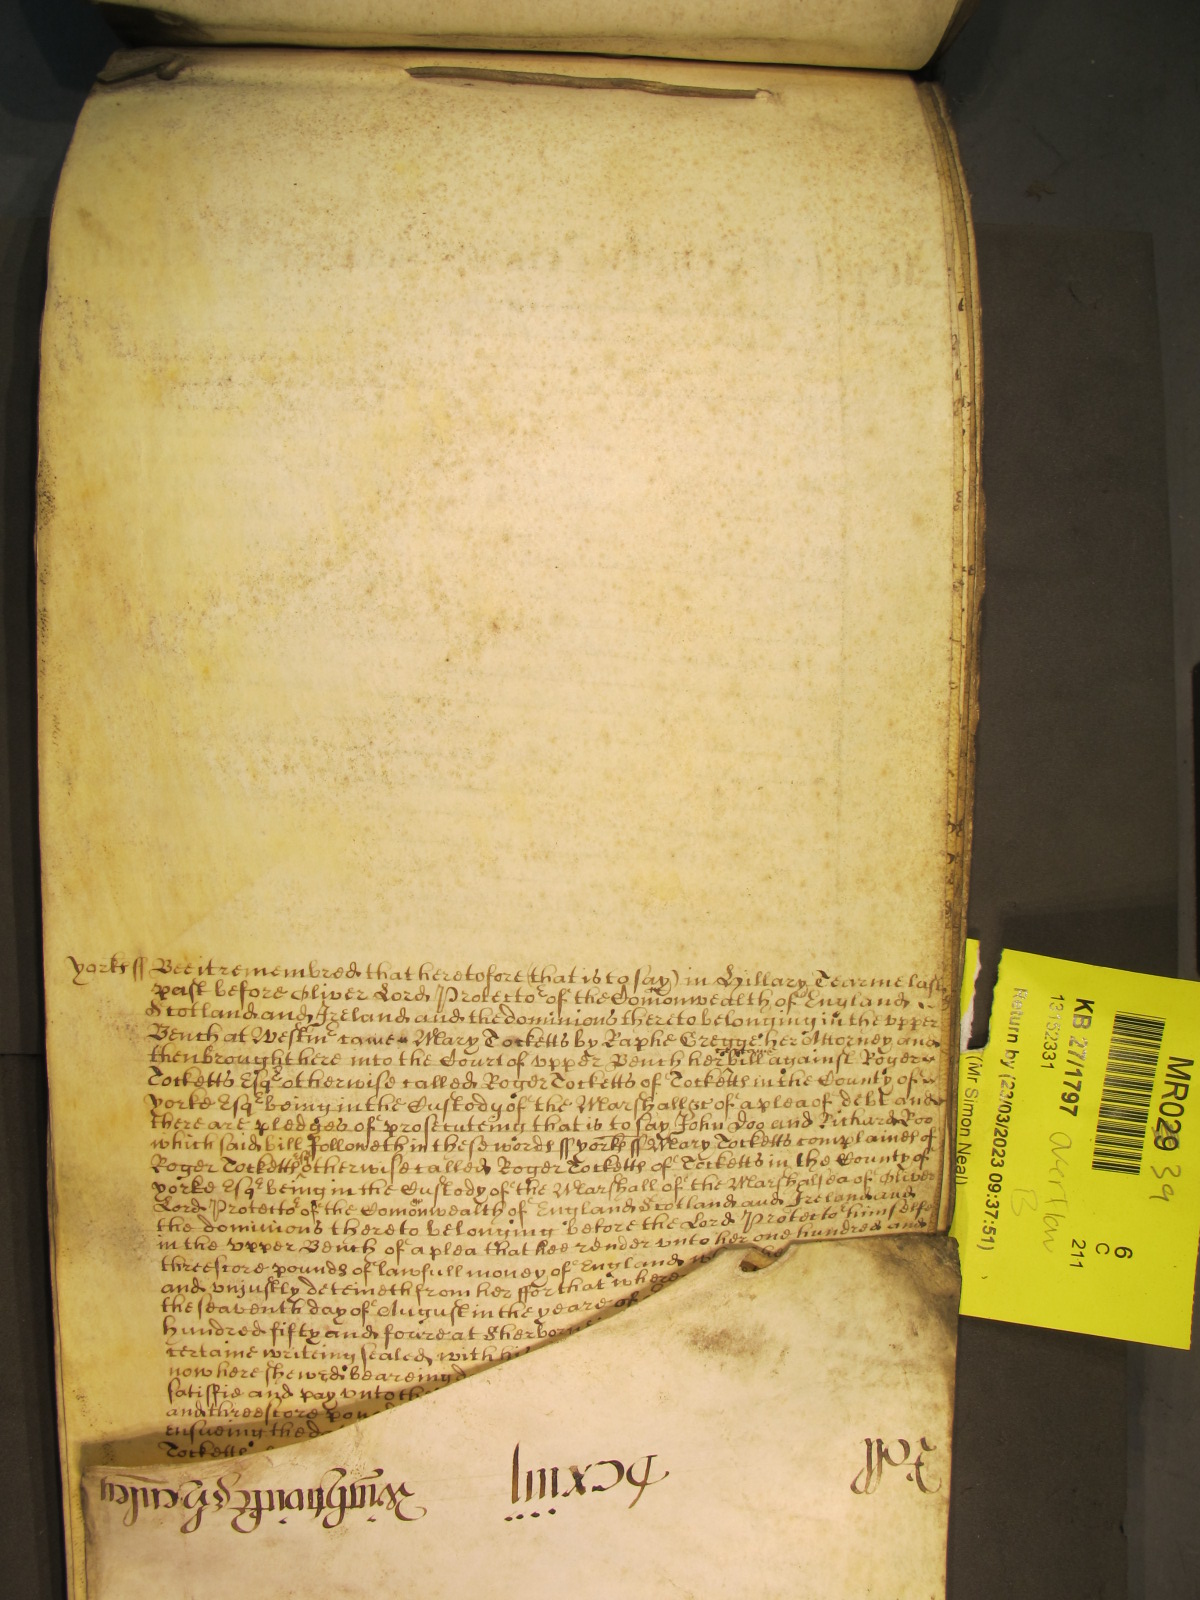 yorks ss Bee it remembred that heretofore (that is to say) in Hillary Tearme last
past before Oliver Lord Protector of the Comonwealth of England
Scotland and Ireland and the dominions thereto belonging in the upper
Bench at Westmr came Mary Tocketts by Raphe Gregge her Attorney and
then brought here into the Court of upper Bench her bill against Roger
Tocketts Esqr otherwise called Roger Tocketts of Tocketts in the County of
yorke Esqr being in the Custody of the Marshall &c of a plea of debt and
there are pledges of prosecuteing that is to say John Doo and Richard Roo
which said bill followeth in these words ss yorks ss Mary Tocketts complaines of
Roger Tocketts otherwise called Roger Tocketts of Tocketts in the County of
yorke Esqr being in the Custody of the Marshall of the Marshalsea of Oliver
Lord Protector of the Comonwealth of England Scotland and Ireland and
the dominions thereto belonging before the Lord Protector himselfe
in the upper Bench of a plea that hee render unto her one hundred and
threescore pounds of lawfull money of England
and unjustly deteineth from her ffor that where
the seaventh day of August in the yeare of
hundred fifty and fowre at Sherborne
certaine writeing sealed with his
now here shewed beareing d
satisfie and pay unto the
and threescore pound
ensueing the d
Tocketts
Roll
Dcxiiij
MR029 39
6
C
211
KB 27/1797
13152331
Return by (23/03/2023 09:37:51)
(Mr Simon Neal)